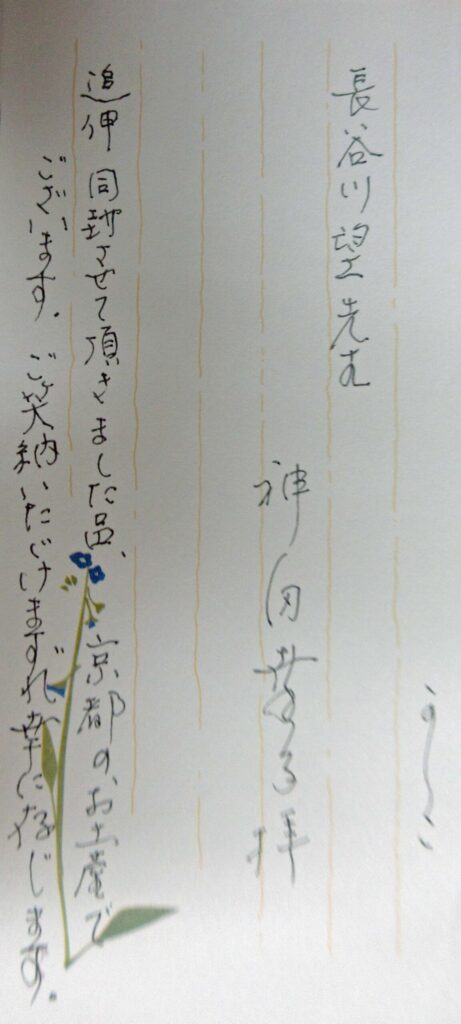 かしこ
長谷川望先生
神田 子拝
追伸 同封させて頂きました品、京都のお土産で
ございます。ご笑納いただけますれば幸に存じます。